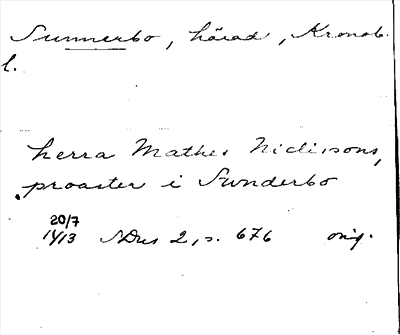 Sunnerbo, härad, Kronob.
l.
herra Mathes Niclissons,
proaster i Sunderbo
20/7
1413 SDns 2, s. 676 orig.